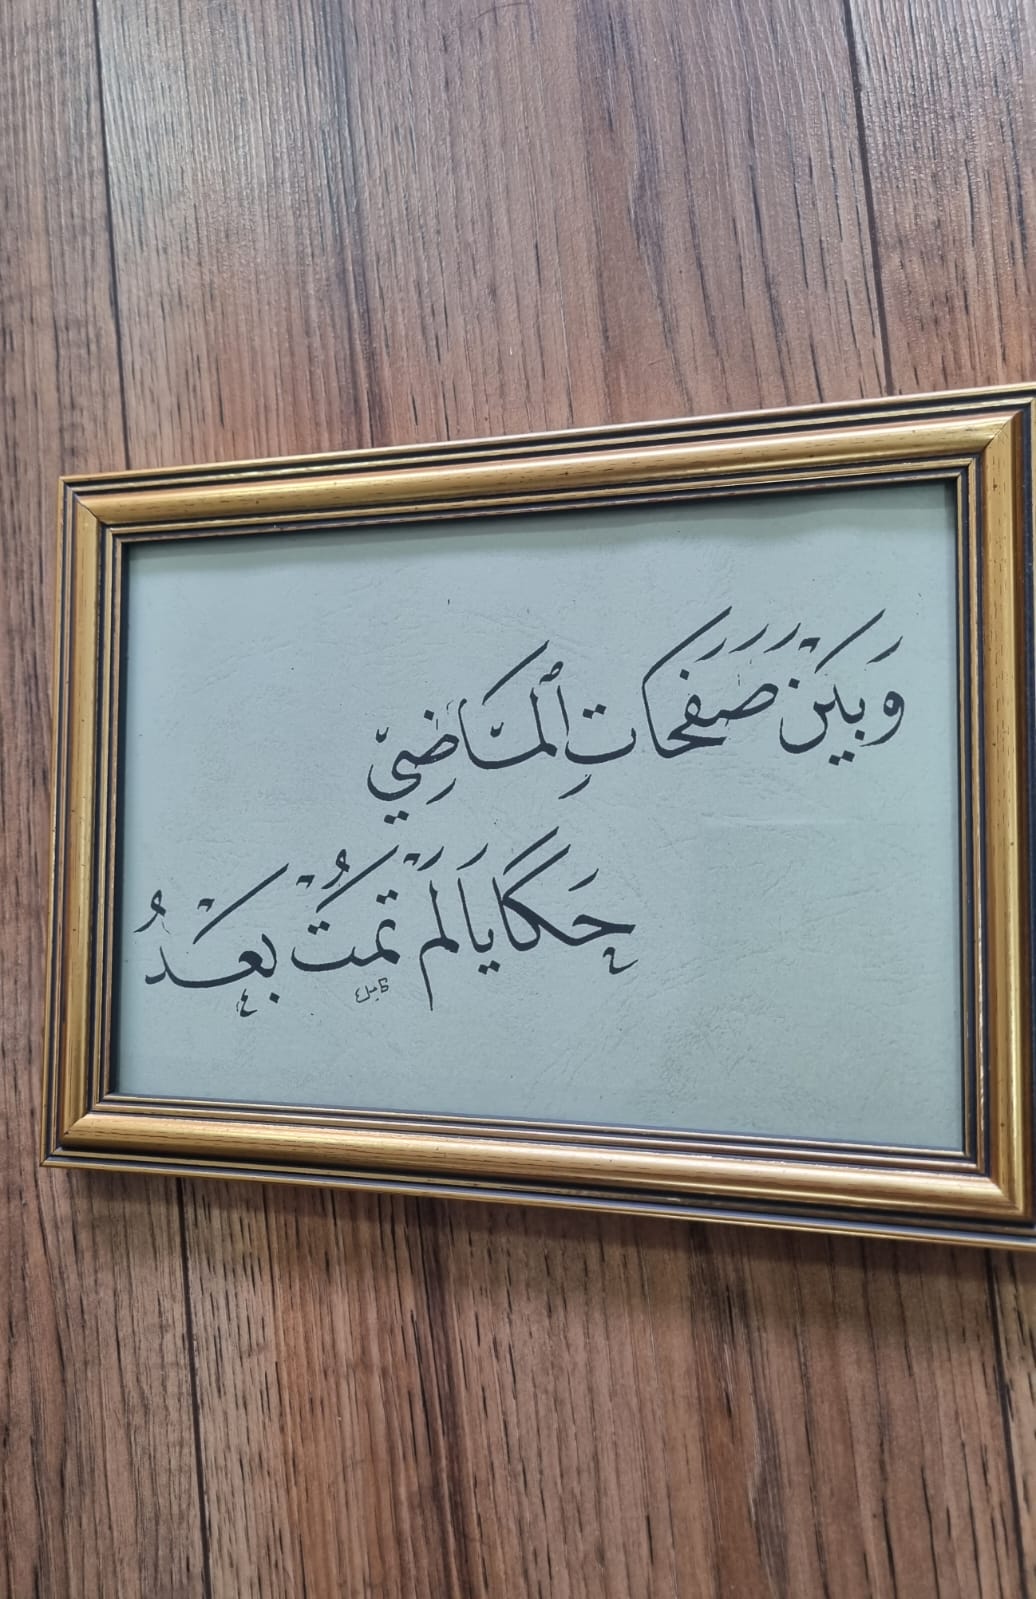 وَبَيْنَ صَفَحَاتِ ٱلْمَاضِي
حَكَايَا لَمْ تَمُتْ بَعْدُ